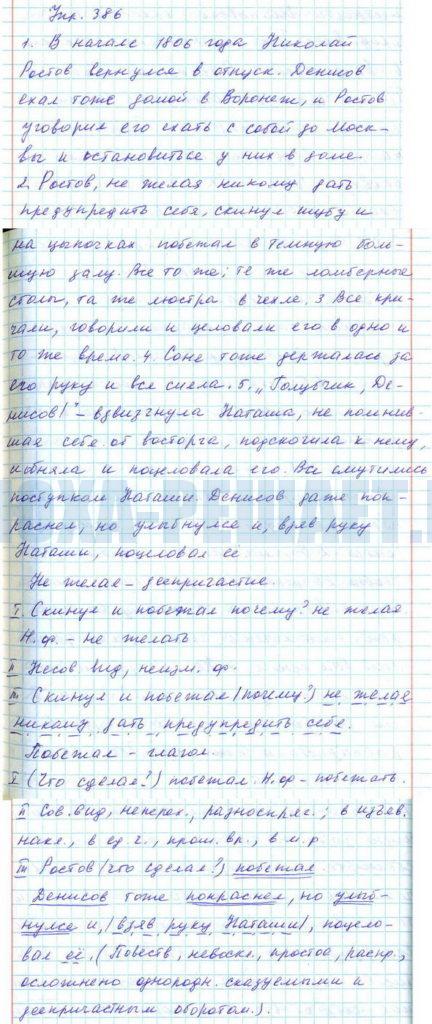 Упр. 386
1. В начале 1806 года Николай
Ростов вернулся в отпуск. Денисов
ехал тоже домой в Воронеж, и Ростов
уговорил его ехать с собой до Моск-
вы и остановиться у них в доме.
2. Ростов, не желая никому дать
предупредить себя, скинул шубу и
на цыпочках побежал в темную боль-
шую залу. Все то же; те же ломберные
столы, та же люстра в чехле. 3 Все кри-
чали, говорили и целовали его в одно и
то же время. 4. Соне тоже держалась за
его руку и все сияла. 5. „Голубчик, Де-
нисов!" – взвизгнула Наташа, не помнив-
шая себя от восторга, подскочила к нему,
и обняла и поцеловала его. Все смутились
поступком Наташи. Денисов даже пок-
раснел, но улыбнулся и, взяв руку
Наташи, поцеловал ее.
Не желая – деепричастие.
I. Скинул и побежал почему? не желая
Н.ф. – не желать
II Несов. вид, неизм. ф.
III Скинул и побежал (почему?) не желая
никому дать предупредить себе.
Побежал – глагол.
I (Что сделал?) побежал. Н.ф – побежать.
II Сов. вид, неперех., разноспряг.; в изъяв.
накл., в ед. ч., прош. вр., в м. р.
III Ростов (что сделал?) побежал.
Денисов тоже покраснел, но улыб-
нулся и, |взяв руку Наташи|, поцело-
вал её. (Повеств, невоскл., простое, распр.,
осложнено однородн. сказуемыми и
деепричастным оборотом.).